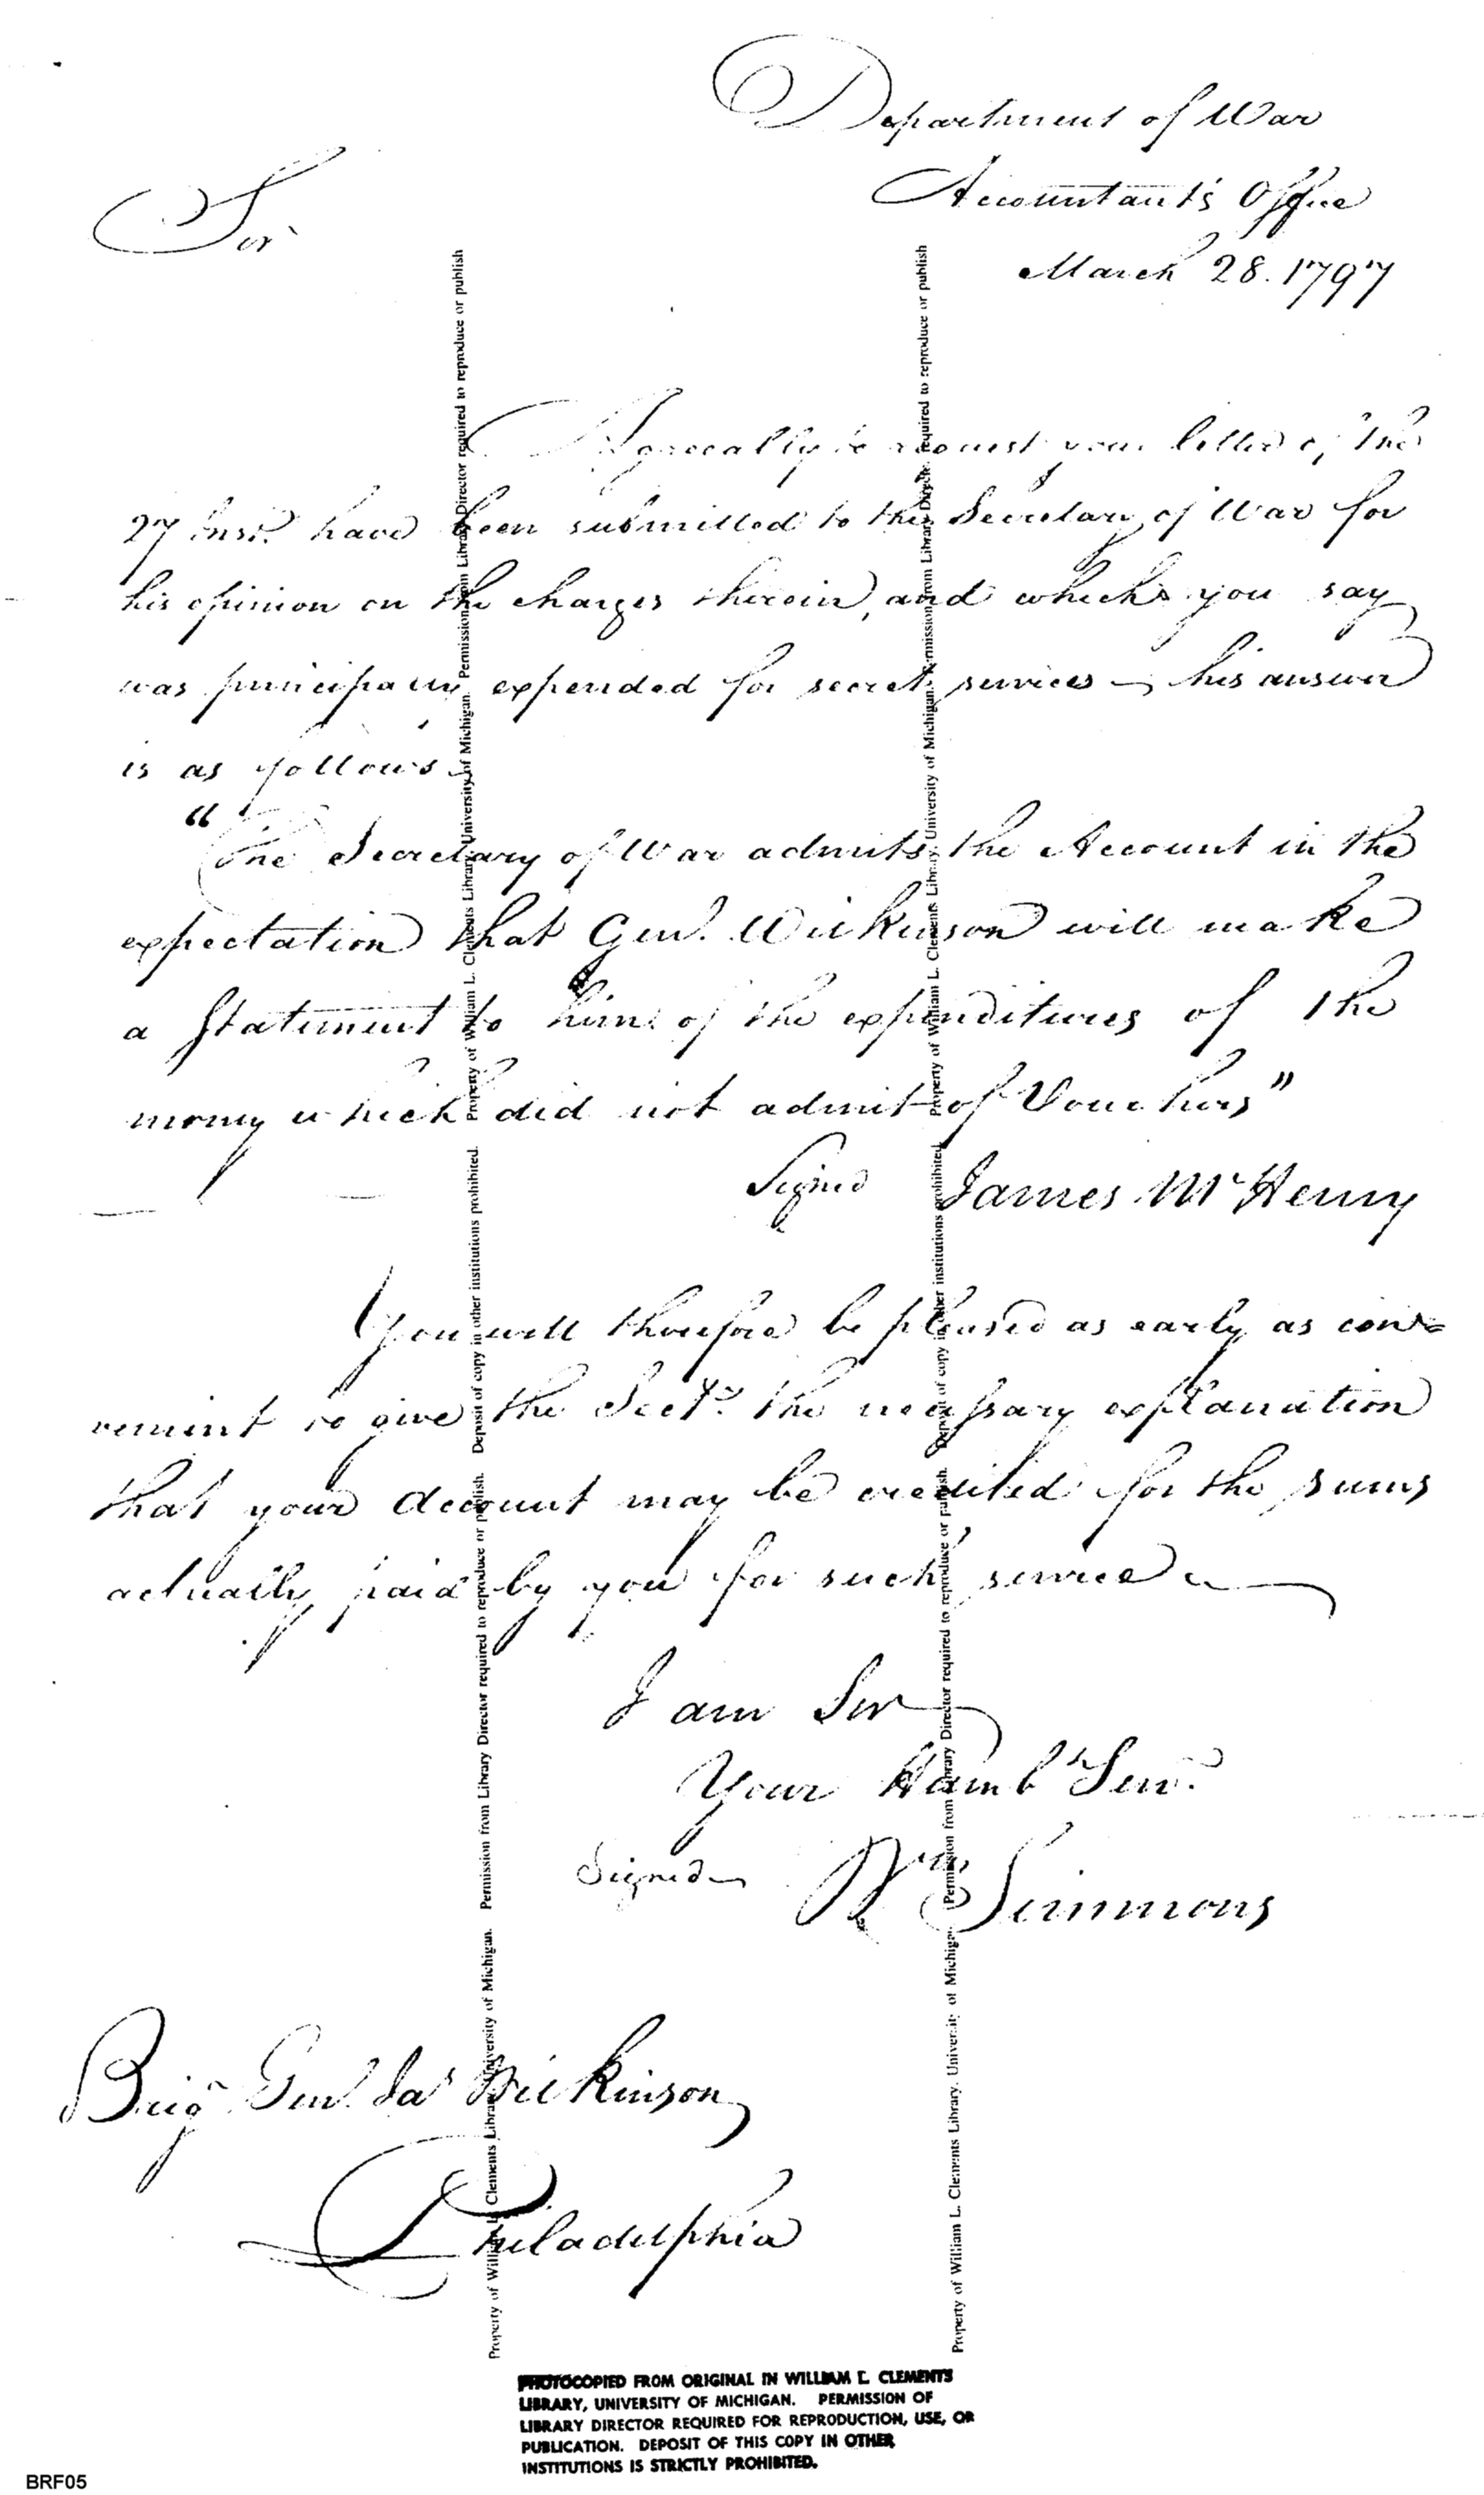 Department of War
Accountant's Office
March 28. 1797
Sir
Agreeably to request your letter of the
27 Inst. have been submitted to the Secretary of War for
his opinion on the charges therein, and which you say
was principally expended for secret services – his answer
is as follows –
"The Secretary of War admits the Account in the
expectation that Genl. Wilkinson will make
a Statement to him of the expenditures of the
money which did not admit of Vouchers"
Signed James McHenry
You will therefore be pleased as early as conve=
nient to give the Secty. the necessary explanation
that your Account may be credited for the sums
actually paid by you for such service
I am Sir
Your Humb Serv.
Signed Wm Simmons
Brigr Genl. Jas Wilkinson
Philadelphia
Property of William L. Clements Library, University of Michigan. Permission from Library Director required to reproduce or publish. Deposit of copy in other institutions prohibited. Property of William L. Clements Library, University of Michigan. Permission from Library Director required to reproduce or publish
Property of William L. Clements Library, University of Michigan. Permission from Library Director required to reproduce or publish. Deposit of copy in other institutions prohibited. Property of William L. Clements Library, University of Michigan. Permission from Library Director required to reproduce or publish
PHOTOCOPIED FROM ORIGINAL IN WILLIAM L. CLEMENTS
LIBRARY, UNIVERSITY OF MICHIGAN. PERMISSION OF
LIBRARY DIRECTOR REQUIRED FOR REPRODUCTION, USE, OR
PUBLICATION. DEPOSIT OF THIS COPY IN OTHER
INSTITUTIONS IS STRICTLY PROHIBITED.
BRF05